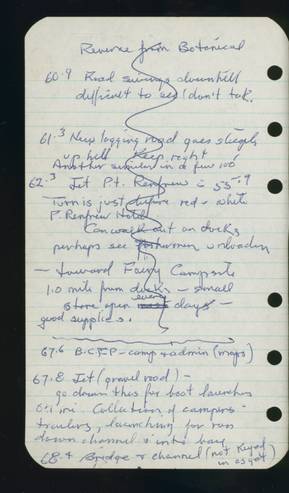 Reverse from Botanical
60.9 Road swings downhill
difficult to see / don't tak.
61.3 New logging road goes steeply
up hill Keep right
Another similar in a few 100
62.3 Jct Pt. Renfrew = 55.9
Turn is just before red + white
P. Renfrew Hotel
Can walk out on docks
perhaps see fishermen unloading
— Toward Fairy Campsite
1.0 mile from docks - small
store open every days -
good supplies.
67.6 B.C.F.P - camp & admin (maps)
67.8 Jct (gravel road) -
go down this for boat launches
0.1 mi. Collection of campers -
trailers, launching for run
down channel & into bay
68.4 Bridge & channel (not